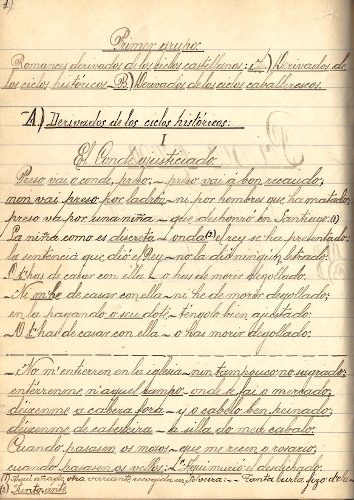 Primer grupo:
Romances derivados de los ciclos castellanos: A) Derivados de
los ciclos históricos - B) Derivados de los ciclos caballerescos.
A) Derivados de los ciclos históricos:
I
El Conde ajusticiado.
Preso vai o conde, preso, - preso vai á bon recaudo;
non vai preso por ladrón, - ni por hombres que ha matado;
preso va por una niña - que deshonró en Santiago: (1)
La niña como es discreta - onda (2) el rey se ha presentado.
la sentencia que dió el Rey - no la dió ningún letrado:
O thas de casar con ella - o has de morir degollado.
- Ni me he de casar con ella - ni he de morir degollado;
en la pagando o seu dote - téngolo bien ajustado.
- O thas de casar con ella - o has morir degollado:
- ¡No m'entierren en la iglesia - nin tampouco no sagrado;
entérrenme n'aquel campo - onde se fai o mercado;
déixenme a cabeza fora - y o cabelo ben peinado;
déixenme de cabeceira - a silla do meu cabalo;
Cuando pasasen os mozos - que me recen o rosario;
cuando pasasen os vellos:
(1) Aquí añade otra variante recogida en
(2) Junto, ante